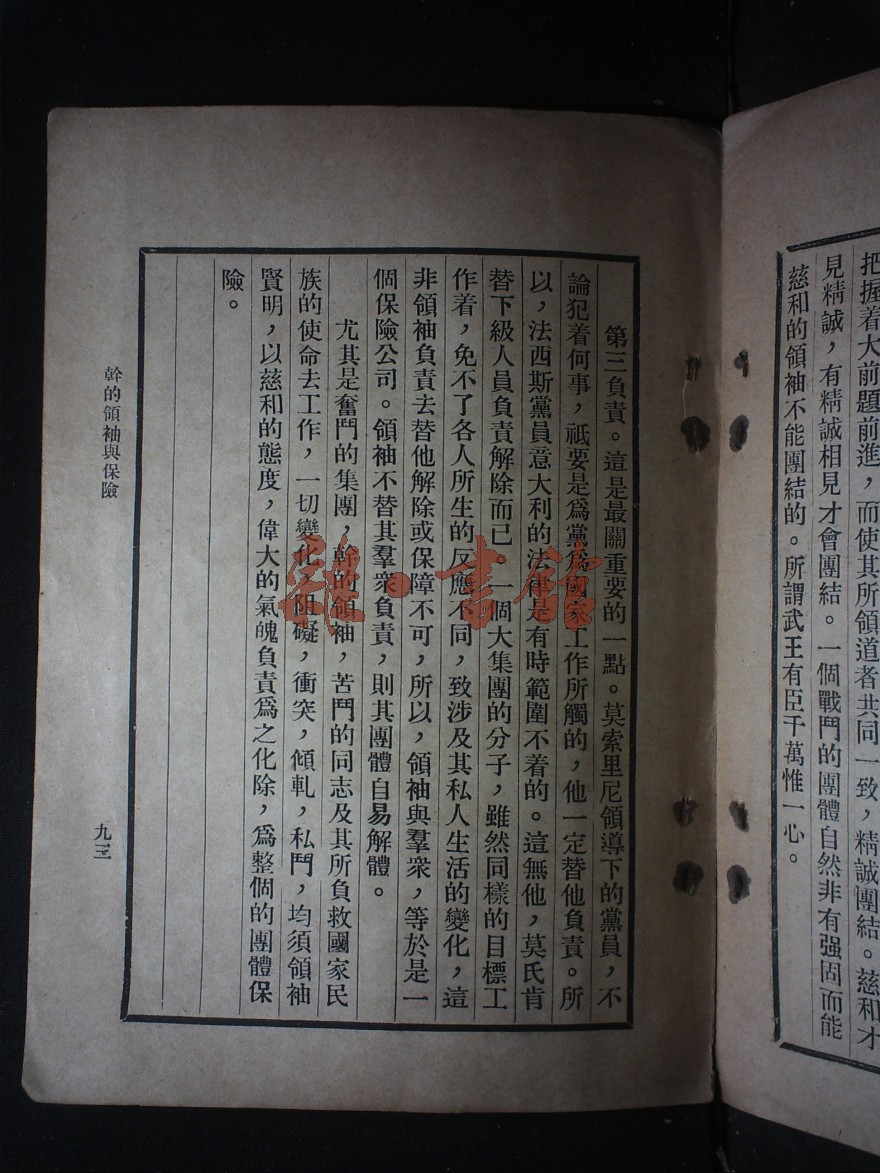 把握着大前題前進，而使其所領道者共同一致，精誠團結。慈和才
見精誠，有精誠相見才會團結。一個戰鬥的團體自然非有强固而能
慈和的領袖不能團結的。所謂武王有臣千萬惟一心。
第三負責。這是最關重要的一點。莫索里尼領導下的黨員，不
論犯着何事，祗要是爲黨爲國家工作所觸的，他一定替他負責。所
以，法西斯黨員意大利的法律是有時範圍不着的。這無他，莫氏肯
替下級人員負責解除而已。一個大集團的分子，雖然同樣的目標工
作着，免不了各人所生的反應不同，致涉及其私人生活的變化，這
非領袖負責去替他解除或保障不可，所以，領袖與羣衆，等於是一
個保險公司。領袖不替其羣衆負責，則其團體自易解體。
尤其是奮鬥的集團，幹的領袖，苦鬥的同志及其所負救國家民
族的使命去工作，一切變化，阻礙，衝突，傾軋，私鬥，均須領袖
賢明，以慈和的態度，偉大的氣魄負責爲之化除，爲整個的團體保
險。
幹的領袖與保險
九三
雜·書館